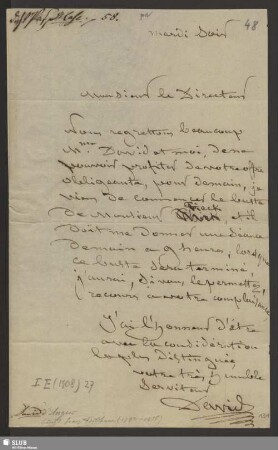 48
mardi Soir
Monsieur le Directeur
Nous regrettons beaucoup
Mme David et moi, de ne
pouvoir profiter de votre offre
obligeante, pour demain, je
viens de commencer le buste
de Monsieur Tieck et il
doit me donner une séance
demain a 9 heures, lorsque
ce buste sera terminé,
j'aurai, si vous le permettez,
recours a votre complaisance
J'ai l'honneur d'être
avec la considération
la plus distinguée,
votre très humble
Serviteur
David
SLUB